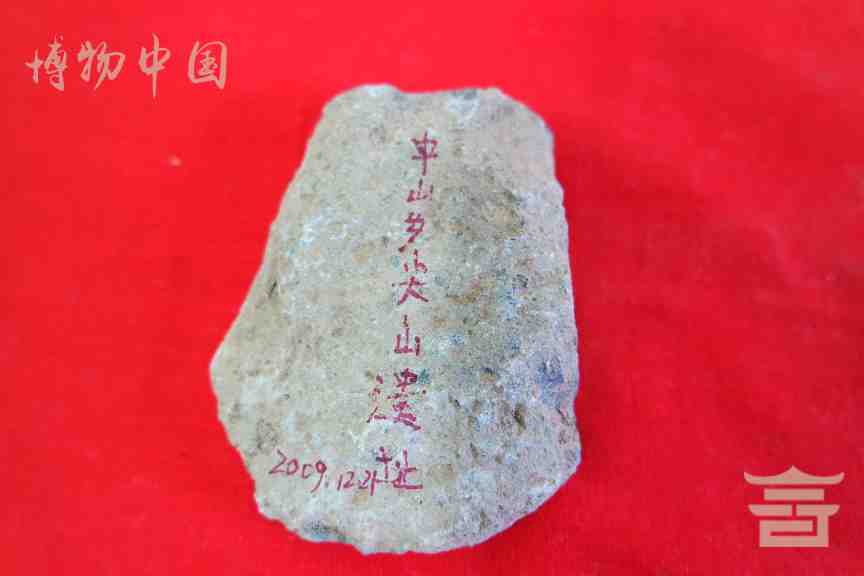 博物中国
中山乡尖山遗址
2009.12.21